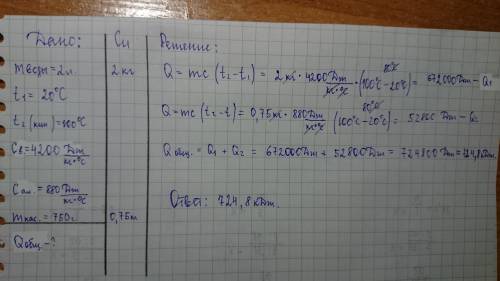 Дано:
Си
Решение:
m воды = 2л.
2 кг
t₁ = 20°C
t₂ (кип) = 100°C
Cв = 4200 Дж/кг•°C
Cал. = 880 Дж/кг•°C
m кас. = 750г.
0,75кг
Qобщ. - ?
80°C
Q = mc (t₂ - t₁) = 2 кг • 4200 Дж/кг•°C • (100°C - 20°C) = 672000 Дж - Q₁
80°C
Q = mc (t₂ - t₁) = 0,75 кг • 880 Дж/кг•°C (100°C - 20°C) = 52800 Дж - Q₂
Qобщ. = Q₁ + Q₂ = 672000 Дж + 52800 Дж = 724800 Дж = 724,8 кДж
Ответ: 724,8 кДж.